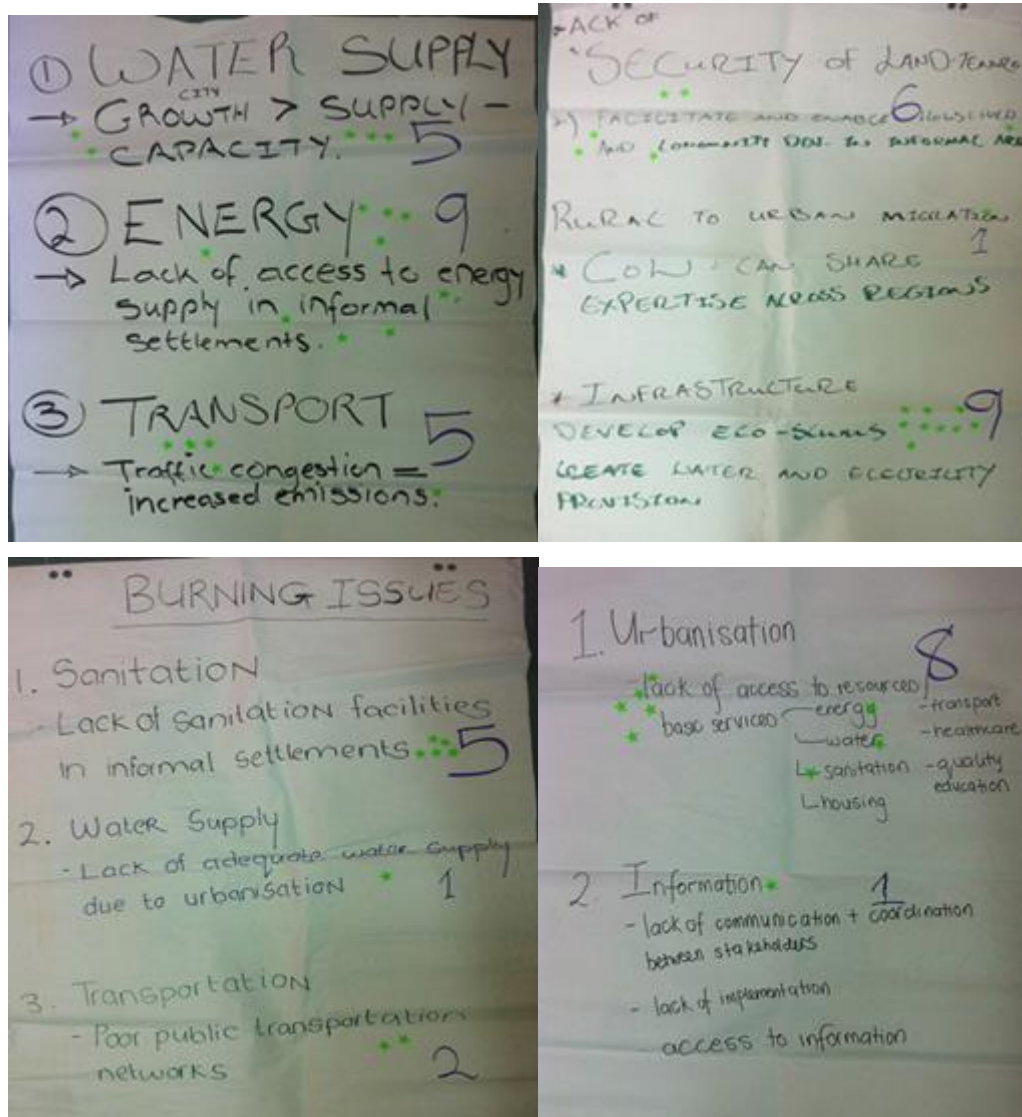 ① WATER SUPPLY
CITY
→ GROWTH > SUPPLY -
CAPACITY. 5
② ENERGY 9
→ Lack of access to energy
supply in informal
settlements.
③ TRANSPORT 5
→ Traffic congestion =
increased emissions.
LACK OF
SECURITY of LAND-TENURE
6
FACILITATE AND ENABLE
AND COMMUNITY DEV. IN INFORMAL
RURAL TO URBAN MIGRATION
1
* COW CAN SHARE
EXPERTISE ACROSS REGIONS
* INFRASTRUCTURE
9
DEVELOP ECO-
CREATE WATER AND ELECTRICITY
PROVISION
BURNING ISSUES
1. Sanitation
- Lack of sanitation facilities
in informal settlements 5
2. Water Supply
- Lack of adequate water supply
due to urbanisation 1
3. Transportation
- Poor public transportation
networks 2
1. Urbanisation
8
- lack of access to resources/
basic services energy - transport
water - healthcare
sanitation - quality
education
housing
2. Information 1
- lack of communication + coordination
between stakeholders
- lack of implementation
access to information